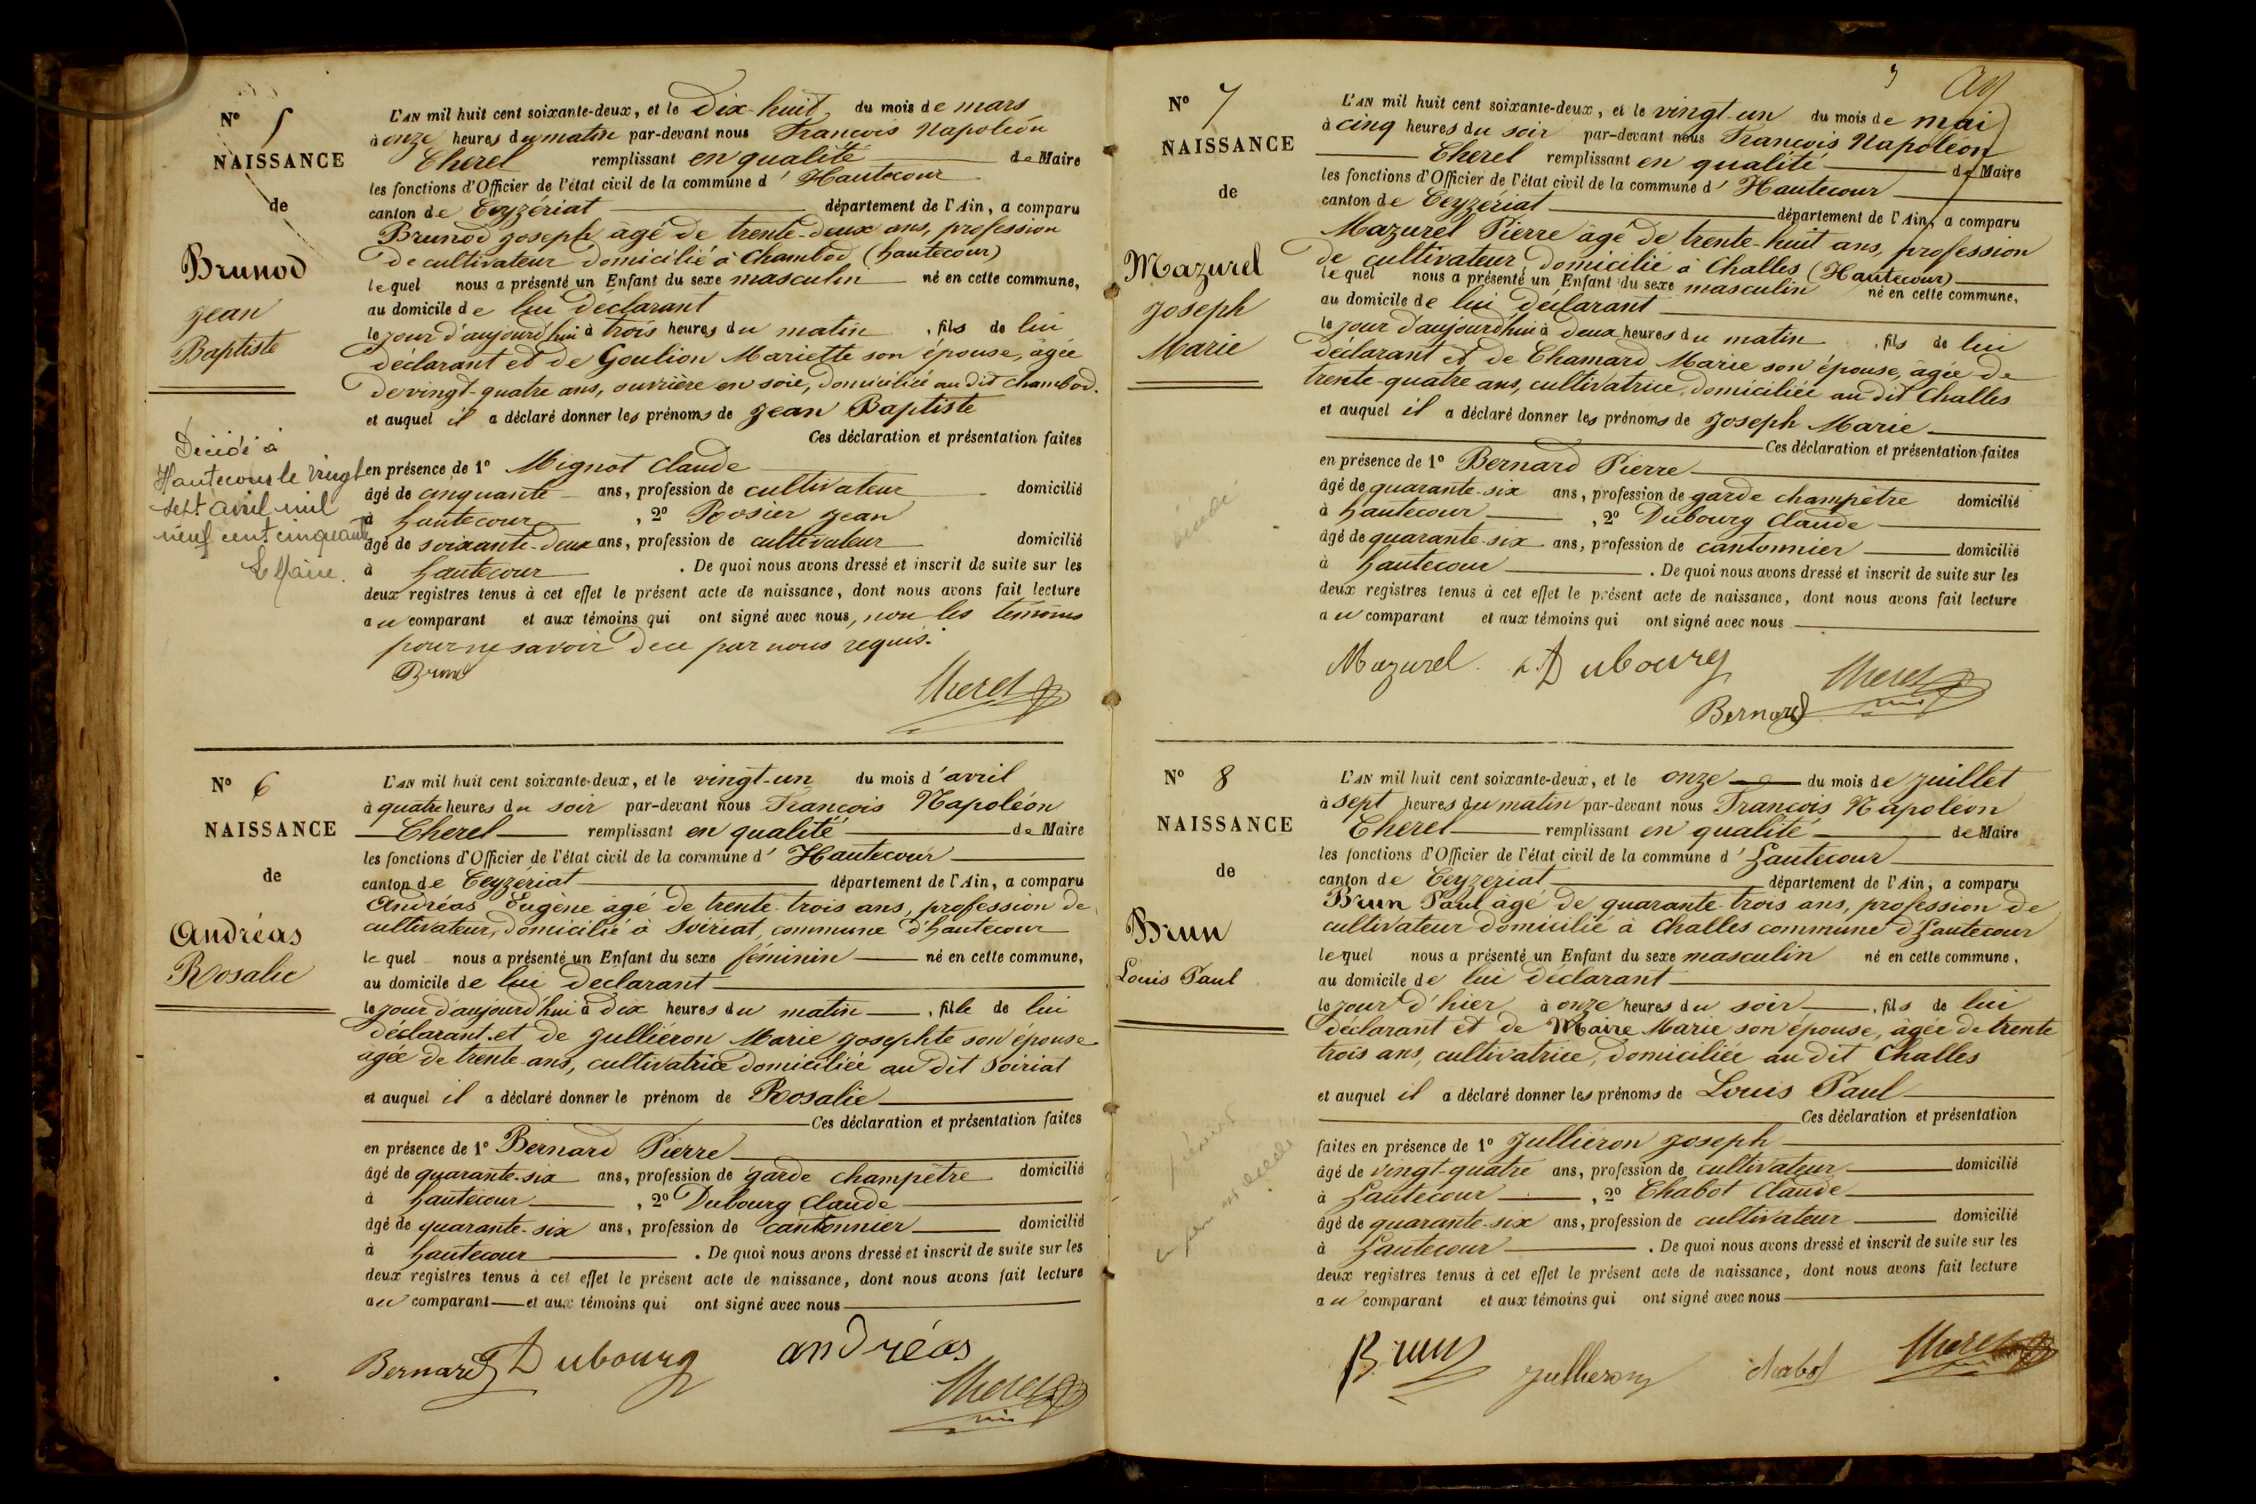 N° 5
NAISSANCE
de
Brunod
Jean
Baptiste
Décédé à
Hautecour le vingt
sept avril mil
neuf cent cinquante
Le Maire.
L'AN mil huit cent soixante-deux, et le Dix-huit du mois de mars
à onze heures du matin par-devant nous François Napoléon
Cherel remplissant en qualité de Maire
les fonctions d'Officier de l'état civil de la commune d' Hautecour
canton de Ceyzériat département de l'Ain, a comparu
Brunod Joseph âgé de trente-deux ans, profession
de cultivateur domicilié à Chambod (hautecour)
lequel nous a présenté un Enfant du sexe masculin né en cette commune,
au domicile de lui déclarant
le jour d'aujourd'hui à trois heures du matin, fils de lui
déclarant et de Goulion Mariette son épouse, âgée
de vingt-quatre ans, ouvrière en soie, domiciliée au dit Chambod.
et auquel il a déclaré donner les prénoms de Jean Baptiste
Ces déclaration et présentation faites
en présence de 1° Mignot Claude
âgé de cinquante ans, profession de cultivateur domicilié
à hautecour, 2° Rosier Jean
âgé de soixante-deux ans, profession de cultivateur domicilié
à hautecour. De quoi nous avons dressé et inscrit de suite sur les
deux registres tenus à cet effet le présent acte de naissance, dont nous avons fait lecture
au comparant et aux témoins qui ont signé avec nous, non les témoins
pour ne savoir de ce par nous requis.
Brunod
Cherel
N° 6
NAISSANCE
de
Andréas
Rosalie
L'AN mil huit cent soixante-deux, et le vingt-un du mois d'avril
à quatre heures du soir par-devant nous François Napoléon
Cherel remplissant en qualité de Maire
les fonctions d'Officier de l'état civil de la commune d' Hautecour
canton de Ceyzériat département de l'Ain, a comparu
Andréas Eugène âgé de trente-trois ans, profession de
cultivateur, domicilié à Soiriat, commune d'hautecour
lequel nous a présenté un Enfant du sexe féminin né en cette commune,
au domicile de lui déclarant
le jour d'aujourd'hui à dix heures du matin, fille de lui
déclarant et de Julliéron Marie Josephte son épouse
âgée de trente ans, cultivatrice domiciliée au dit Soiriat
et auquel il a déclaré donner le prénom de Rosalie
Ces déclaration et présentation faites
en présence de 1° Bernard Pierre
âgé de quarante-six ans, profession de garde champêtre domicilié
à hautecour, 2° Dubourg Claude
âgé de quarante-six ans, profession de cantonnier domicilié
à hautecour. De quoi nous avons dressé et inscrit de suite sur les
deux registres tenus à cet effet le présent acte de naissance, dont nous avons fait lecture
au comparant et aux témoins qui ont signé avec nous
Bernard Dubourg andréas
Cherel
N° 7
NAISSANCE
de
Mazurel
Joseph
Marie
L'AN mil huit cent soixante-deux, et le vingt-un du mois de mai
à cinq heures du soir par-devant nous François Napoléon
Cherel remplissant en qualité de Maire
les fonctions d'Officier de l'état civil de la commune d' Hautecour
canton de Ceyzériat département de l'Ain, a comparu
Mazurel Pierre âgé de trente-huit ans, profession
de cultivateur, domicilié à Challes (Hautecour)
lequel nous a présenté un Enfant du sexe masculin né en cette commune,
au domicile de lui déclarant
le jour d'aujourd'hui à deux heures du matin, fils de lui
déclarant et de Chamard Marie son épouse, âgée de
trente-quatre ans, cultivatrice, domiciliée au dit Challes
et auquel il a déclaré donner les prénoms de Joseph Marie
Ces déclaration et présentation faites
en présence de 1° Bernard Pierre
âgé de quarante-six ans, profession de garde champêtre domicilié
à hautecour, 2° Dubourg Claude
âgé de quarante-six ans, profession de cantonnier domicilié
à hautecour. De quoi nous avons dressé et inscrit de suite sur les
deux registres tenus à cet effet le présent acte de naissance, dont nous avons fait lecture
au comparant et aux témoins qui ont signé avec nous
Mazurel Dubourg Cherel
Bernard
N° 8
NAISSANCE
de
Brun
Louis Paul
L'AN mil huit cent soixante-deux, et le onze du mois de juillet
à sept heures du matin par-devant nous François Napoléon
Cherel remplissant en qualité de Maire
les fonctions d'Officier de l'état civil de la commune d' hautecour
canton de Ceyzériat département de l'Ain, a comparu
Brun Paul âgé de quarante-trois ans, profession de
cultivateur domicilié à Challes commune d'hautecour
lequel nous a présenté un Enfant du sexe masculin né en cette commune,
au domicile de lui déclarant
le jour d'hier à onze heures du soir, fils de lui
déclarant et de Maire Marie son épouse, âgée de trente
trois ans, cultivatrice, domiciliée au dit Challes
et auquel il a déclaré donner les prénoms de Louis Paul
Ces déclaration et présentation
faites en présence de 1° Julliéron Joseph
âgé de vingt-quatre ans, profession de cultivateur domicilié
à hautecour, 2° Chabot Claude
âgé de quarante-six ans, profession de cultivateur domicilié
à hautecour. De quoi nous avons dressé et inscrit de suite sur les
deux registres tenus à cet effet le présent acte de naissance, dont nous avons fait lecture
au comparant et aux témoins qui ont signé avec nous
Brun Julliéron Chabot Cherel